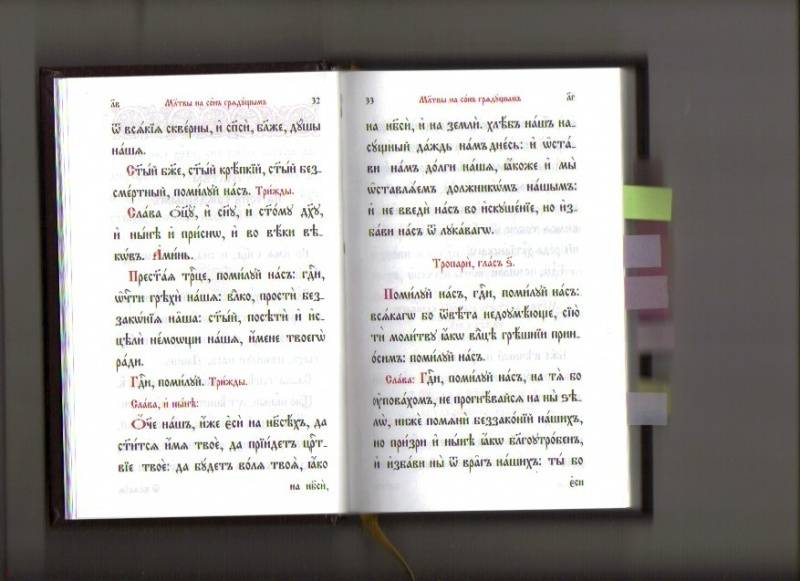 л҃в Мл҃твы на со́нъ гряду́щымъ 32
ѿ всѧ́кїѧ скве́рны, и҆ сп҃си́, бл҃же, дꙋ́шы
на́шѧ.
Ст҃ы́й бж҃е, ст҃ы́й крѣ́пкїй, ст҃ы́й без-
сме́ртный, поми́лꙋй на́съ. Три́жды.
Сла́ва ѻ҆ц҃ꙋ̀, и҆ сн҃ꙋ, и҆ ст҃о́мꙋ дх҃ꙋ,
и҆ ны́нѣ и҆ при́снѡ, и҆ во вѣ́ки вѣ-
кѡ́въ. А҆ми́нь.
Прест҃а́ѧ трⷪ҇це, поми́лꙋй на́съ: гдⷭ҇и,
ѡ҆чⷭ҇ти грѣхѝ на́шѧ: влⷣко, простѝ без-
закѡ́нїѧ на̑ша: ст҃ы́й, посѣтѝ и҆ и҆с-
цѣлѝ не́мѡщи на́шѧ, и҆́мене твоегѡ̀
ра́ди.
Гдⷭ҇и, поми́лꙋй. Три́жды.
Сла́ва, и҆ ны́нѣ:
Ѻ҆́ч҃е на́шъ, и҆́же є҆сѝ на нб҃сѣ́хъ, да
ст҃и́тсѧ и҆́мѧ твоѐ, да прїи́детъ црⷭ҇т-
вїе твоѐ: да бꙋ́детъ во́лѧ твоѧ̀, ꙗ҆́кѡ
на нб҃сѝ,
33 Мл҃твы на со́нъ грѧдꙋ́щымъ л҃г
на нб҃сѝ, и҆ на землѝ. хлѣ́бъ на́шъ на-
сꙋ́щный да́ждь на́мъ дне́сь: и҆ ѡ҆ста́-
ви на́мъ до́лги на́шѧ, ꙗ҆́коже и҆ мы̀
ѡ҆ставлѧ́емъ должникѡ́мъ на́шымъ:
и҆ не введѝ на́съ во и҆скꙋше́нїе, но и҆з-
ба́ви на́съ ѿ лꙋка́вагѡ.
Тропари̑, гла́съ ѕ҃.
Поми́лꙋй на́съ, гдⷭ҇и, поми́лꙋй на́съ:
всѧ́кагѡ бо ѿвѣ́та недоꙋмѣ́юще, сїю̀
тѝ моли́твꙋ ꙗ҆́кѡ влⷣцѣ грѣ́шнїи прин-
о́симъ: поми́лꙋй на́съ.
Сла́ва: Гдⷭ҇и, поми́лꙋй на́съ, на тѧ̀ бо
ᲂу҆пова́хомъ, не прогнѣ́вайсѧ на ны̀ ѕѣ-
лѡ̀, нижѐ помѧнѝ беззако́нїй на́шихъ,
но при́зри и҆ ны́нѣ ꙗ҆́кѡ бл҃гоꙋтро́бенъ,
и҆ и҆зба́ви ны̀ ѿ вра̑гъ на́шихъ: ты̀ бо
є҆сѝ